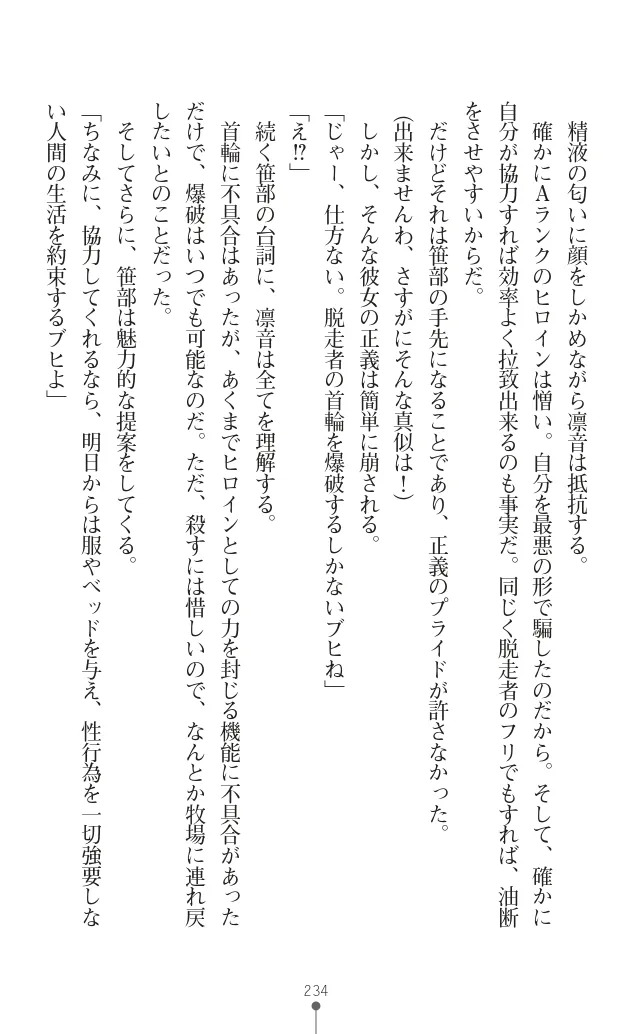 精液の匂いに顔をしかめながら凛音は抵抗する。
確かにＡランクのヒロインは憎い。自分を最悪の形で騙したのだから。そして、確かに
自分が協力すれば効率よく拉致出来るのも事実だ。同じく脱走者のフリでもすれば、油断
をさせやすいからだ。
だけどそれは笹部の手先になることであり、正義のプライドが許さなかった。
（出来ませんわ、さすがにそんな真似は！）
しかし、そんな彼女の正義は簡単に崩される。
「じゃー、仕方ない。脱走者の首輪を爆破するしかないブヒね」
「え!?」
続く笹部の台詞に、凛音は全てを理解する。
首輪に不具合はあったが、あくまでヒロインとしての力を封じる機能に不具合があった
だけで、爆破はいつでも可能なのだ。ただ、殺すには惜しいので、なんとか牧場に連れ戻
したいとのことだった。
そしてさらに、笹部は魅力的な提案をしてくる。
「ちなみに、協力してくれるなら、明日からは服やベッドを与え、性行為を一切強要しな
い人間の生活を約束するブヒよ」
234